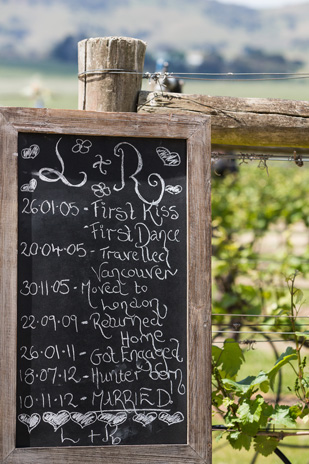 L & R
26·01·05 - First Kiss
- First Dance
20·04·05 - Travelled
Vancouver
30·11·05 - Moved to
London
22·09·09 - Returned
Home
26·01·11 - Got Engaged
18·07·12 - Hunter born
10·11·12 - MARRIED